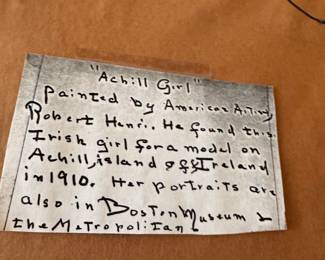 "Achill Girl"
painted by American Artist
Robert Henri. He found this
Irish girl for a model on
Achill, island off Ireland
in 1910. Her portraits are
also in Boston Museum &
the Metropolitan